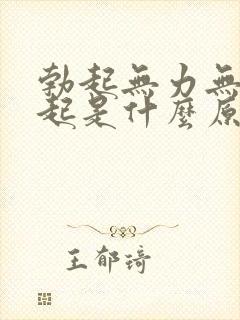 勃起無力無
起是什麼原
王郁琦